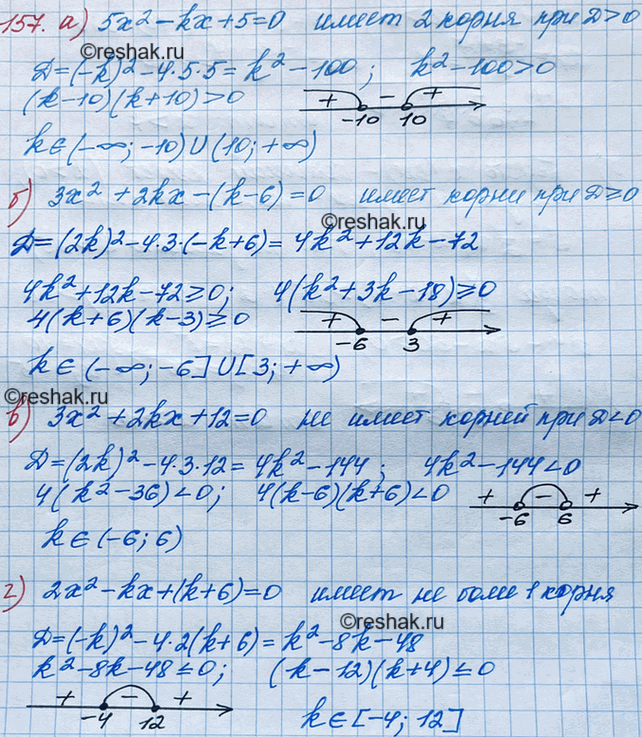 157. а) 5x² - kx + 5 = 0 имеет 2 корня при D>0
©reshak.ru
D = (-k)² - 4·5·5 = k² - 100 ; k² - 100 > 0
(k-10)(k+10) > 0 + - +
-10 10
k ∈ (-∞; -10) ∪ (10; +∞)
б) 3x² + 2kx - (k-6) = 0 имеет корни при D ≥ 0
©reshak.ru
D = (2k)² - 4·3·(-k+6) = 4k² + 12k - 72
4k² + 12k - 72 ≥ 0; 4(k² + 3k - 18) ≥ 0
4(k+6)(k-3) ≥ 0 + - +
-6 3
k ∈ (-∞; -6] ∪ [3; +∞)
©reshak.ru
в) 3x² + 2kx + 12 = 0 не имеет корней при D < 0
D = (2k)² - 4·3·12 = 4k² - 144 ; 4k² - 144 < 0
4(k² - 36) < 0; 4(k-6)(k+6) < 0 + - +
-6 6
k ∈ (-6; 6)
г) 2x² - kx + (k+6) = 0 имеет не более 1 корня
©reshak.ru
D = (-k)² - 4·2(k+6) = k² - 8k - 48
k² - 8k - 48 ≤ 0; (k-12)(k+4) ≤ 0
+ - +
-4 12
k ∈ [-4; 12]